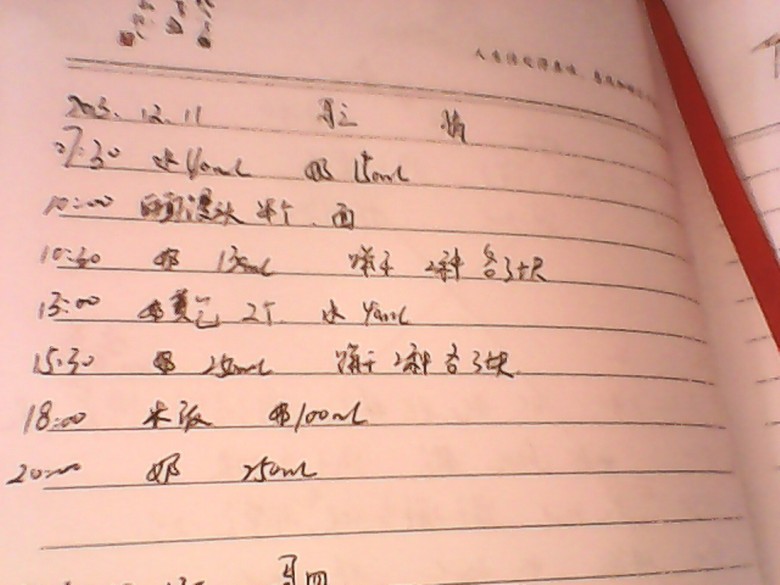 12.11 周三 晴
07:30 水40mL 奶150mL
10:00 馒头半个、面
10:30 奶 135mL 饼干 2种 各3块
13:00 黄包 2个 水 40mL
15:30 奶 250mL 饼干 2种 各3块
18:00 米饭 奶100mL
20:00 奶 250mL
周四